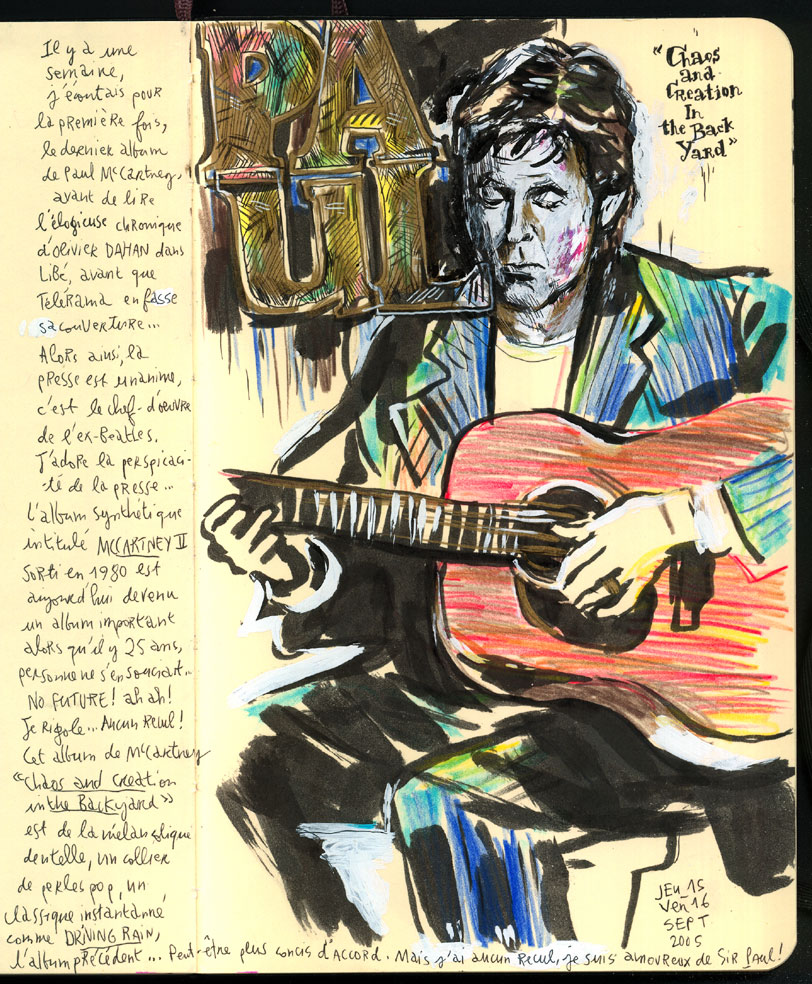 Il y a une
semaine,
j'écoutais pour
la première fois,
le dernier album
de Paul McCartney,
avant de lire
l'élogieuse chronique
d'Olivier DAHAN dans
Libé, avant que
Télérama en fasse
sa couverture...
Alors ainsi, la
presse est unanime,
c'est le chef-d'oeuvre
de l'ex-Beatles.
J'adore la perspicaci-
té de la presse...
L'album synthétique
intitulé McCARTNEY II
sorti en 1980 est
aujourd'hui devenu
un album important
alors qu'il y 25 ans,
personne ne s'en souciait...
NO FUTURE! ah ah!
Je rigole... Aucun recul!
Cet album de McCartney
"Chaos and Creation
in the Backyard"
est de la mélancolique
dentelle, un collier
de perles pop, un
classique instantanné
comme DRIVING RAIN,
l'album précédent... Peut-être plus concis d'accord. Mais j'ai aucun recul, je suis amoureux de Sir Paul!
PA
UL
"Chaos
and
Creation
In
the Back
Yard"
JEU_15
Ven_16
SEPT
2005